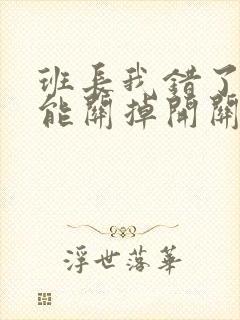 班長我錯了
能關掉開關
浮世落華